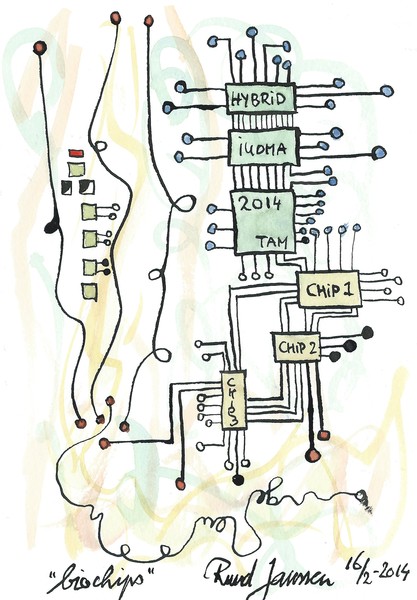 HYBRID
iUOMA
2014
TAM
CHIP1
CHIP 2
CHIP3
"biochips" Ruud Janssen 16/2-2014